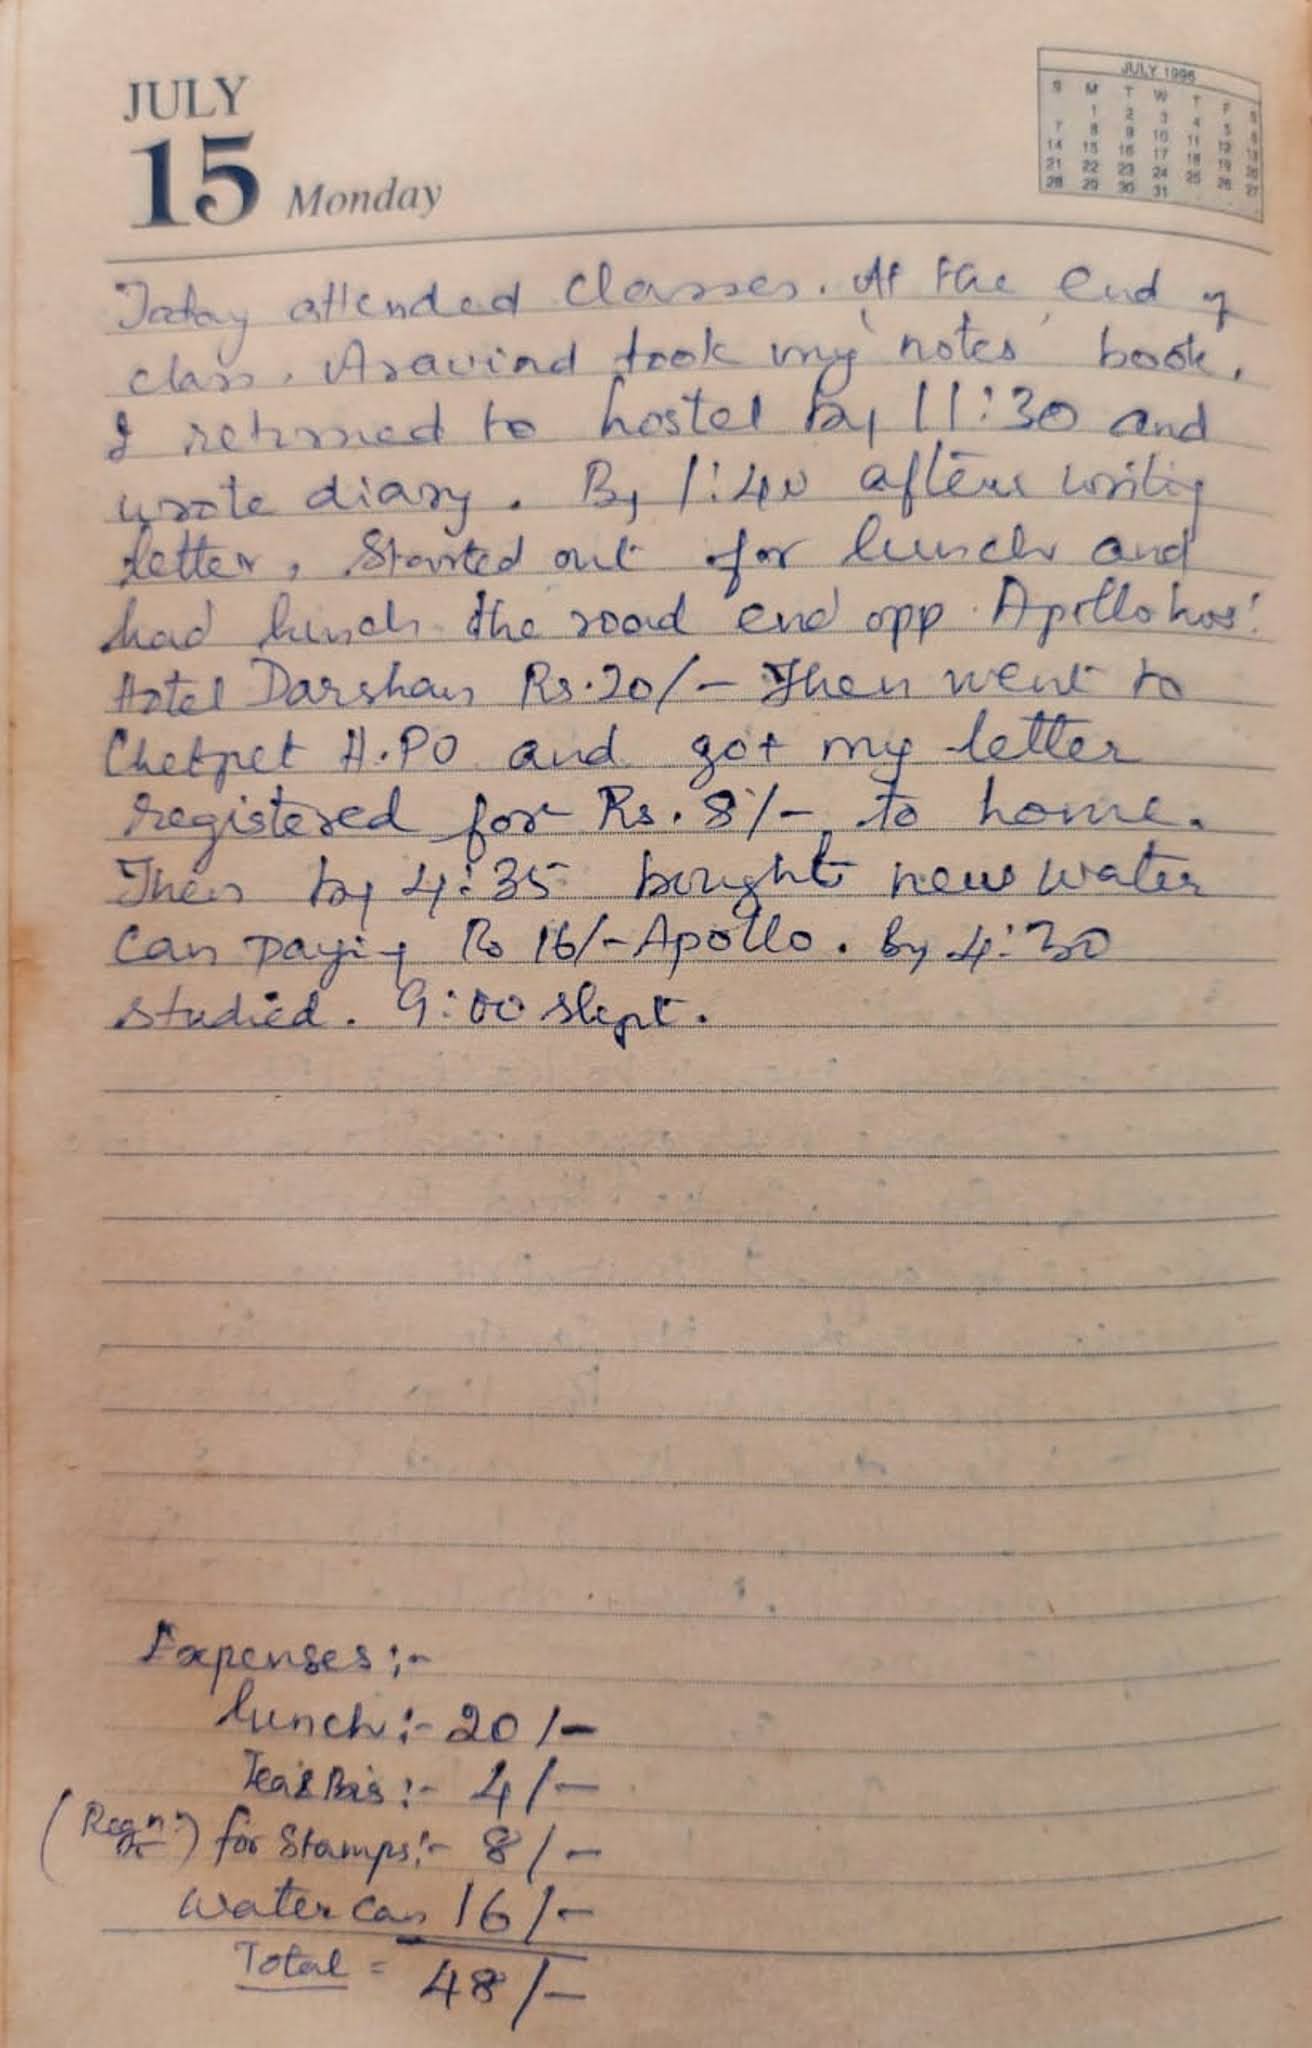 JULY
15 Monday
JULY 1996
S M T W T F S
1 2 3 4 5 6
7 8 9 10 11 12 13
14 15 16 17 18 19 20
21 22 23 24 25 26 27
28 29 30 31
Today attended classes. At the end of
class, Aravind took my 'notes' book.
I returned to hostel by 11:30 and
wrote diary. By 1:40 after writing
letter, Started out for lunch and
had lunch the road end opp. Apollo hos!
Hotel Darshan Rs.20/- Then went to
Chetpet H.PO and got my letter
registered for Rs. 8/- to home.
Then by 4:35 bought new water
can paying Rs 16/- Apollo. By 4:30
studied. 9:00 slept.
Expenses :-
lunch :- 20/-
Tea & Bis :- 4/-
(Regn) for Stamps :- 8/-
water can 16/-
Total = 48/-